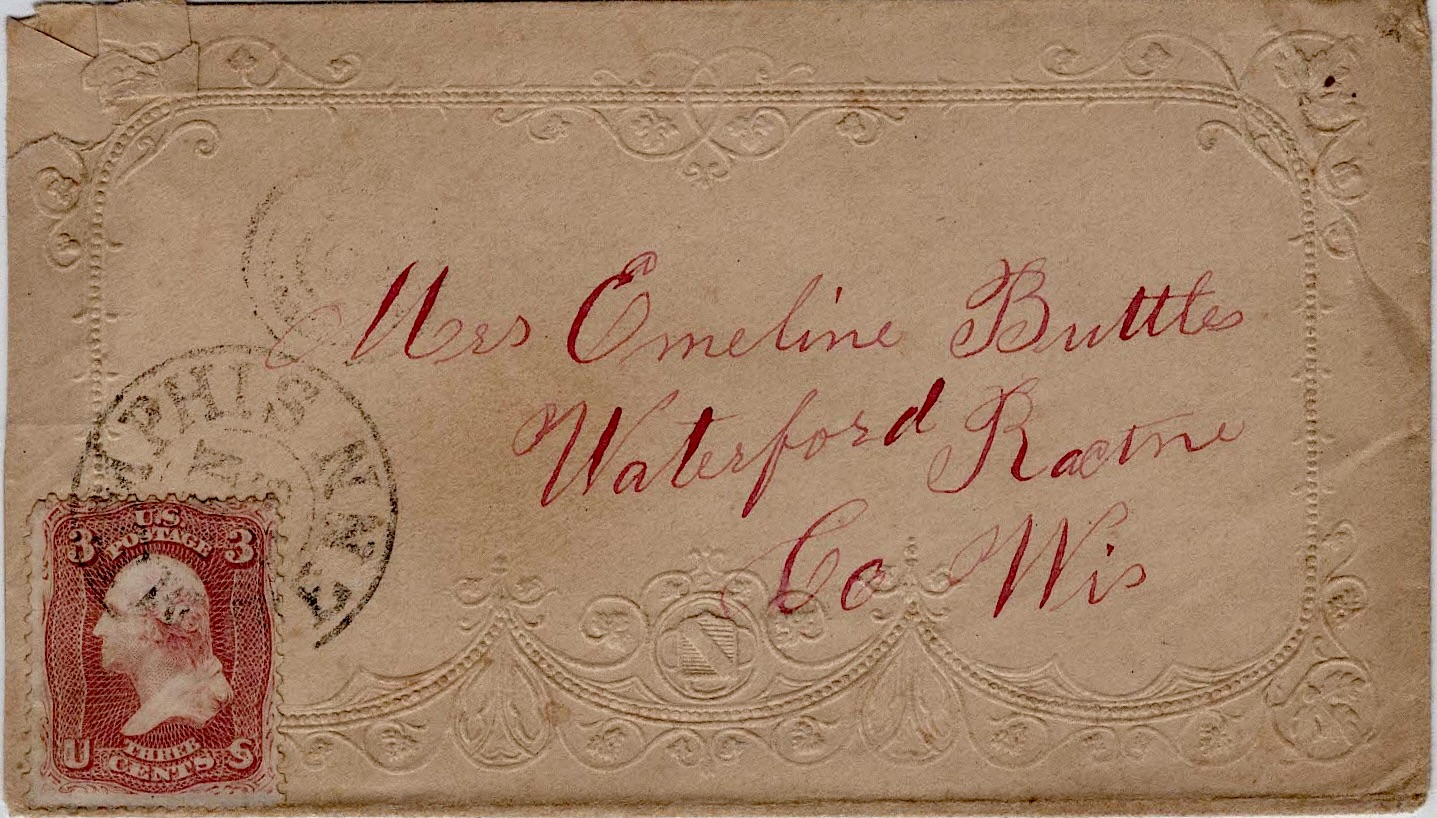 Mrs Emeline Buttles
Waterford Racine
Co Wis
MPHIS TENN
N
U.S. POSTAGE
3 3
U THREE S
CENTS
N